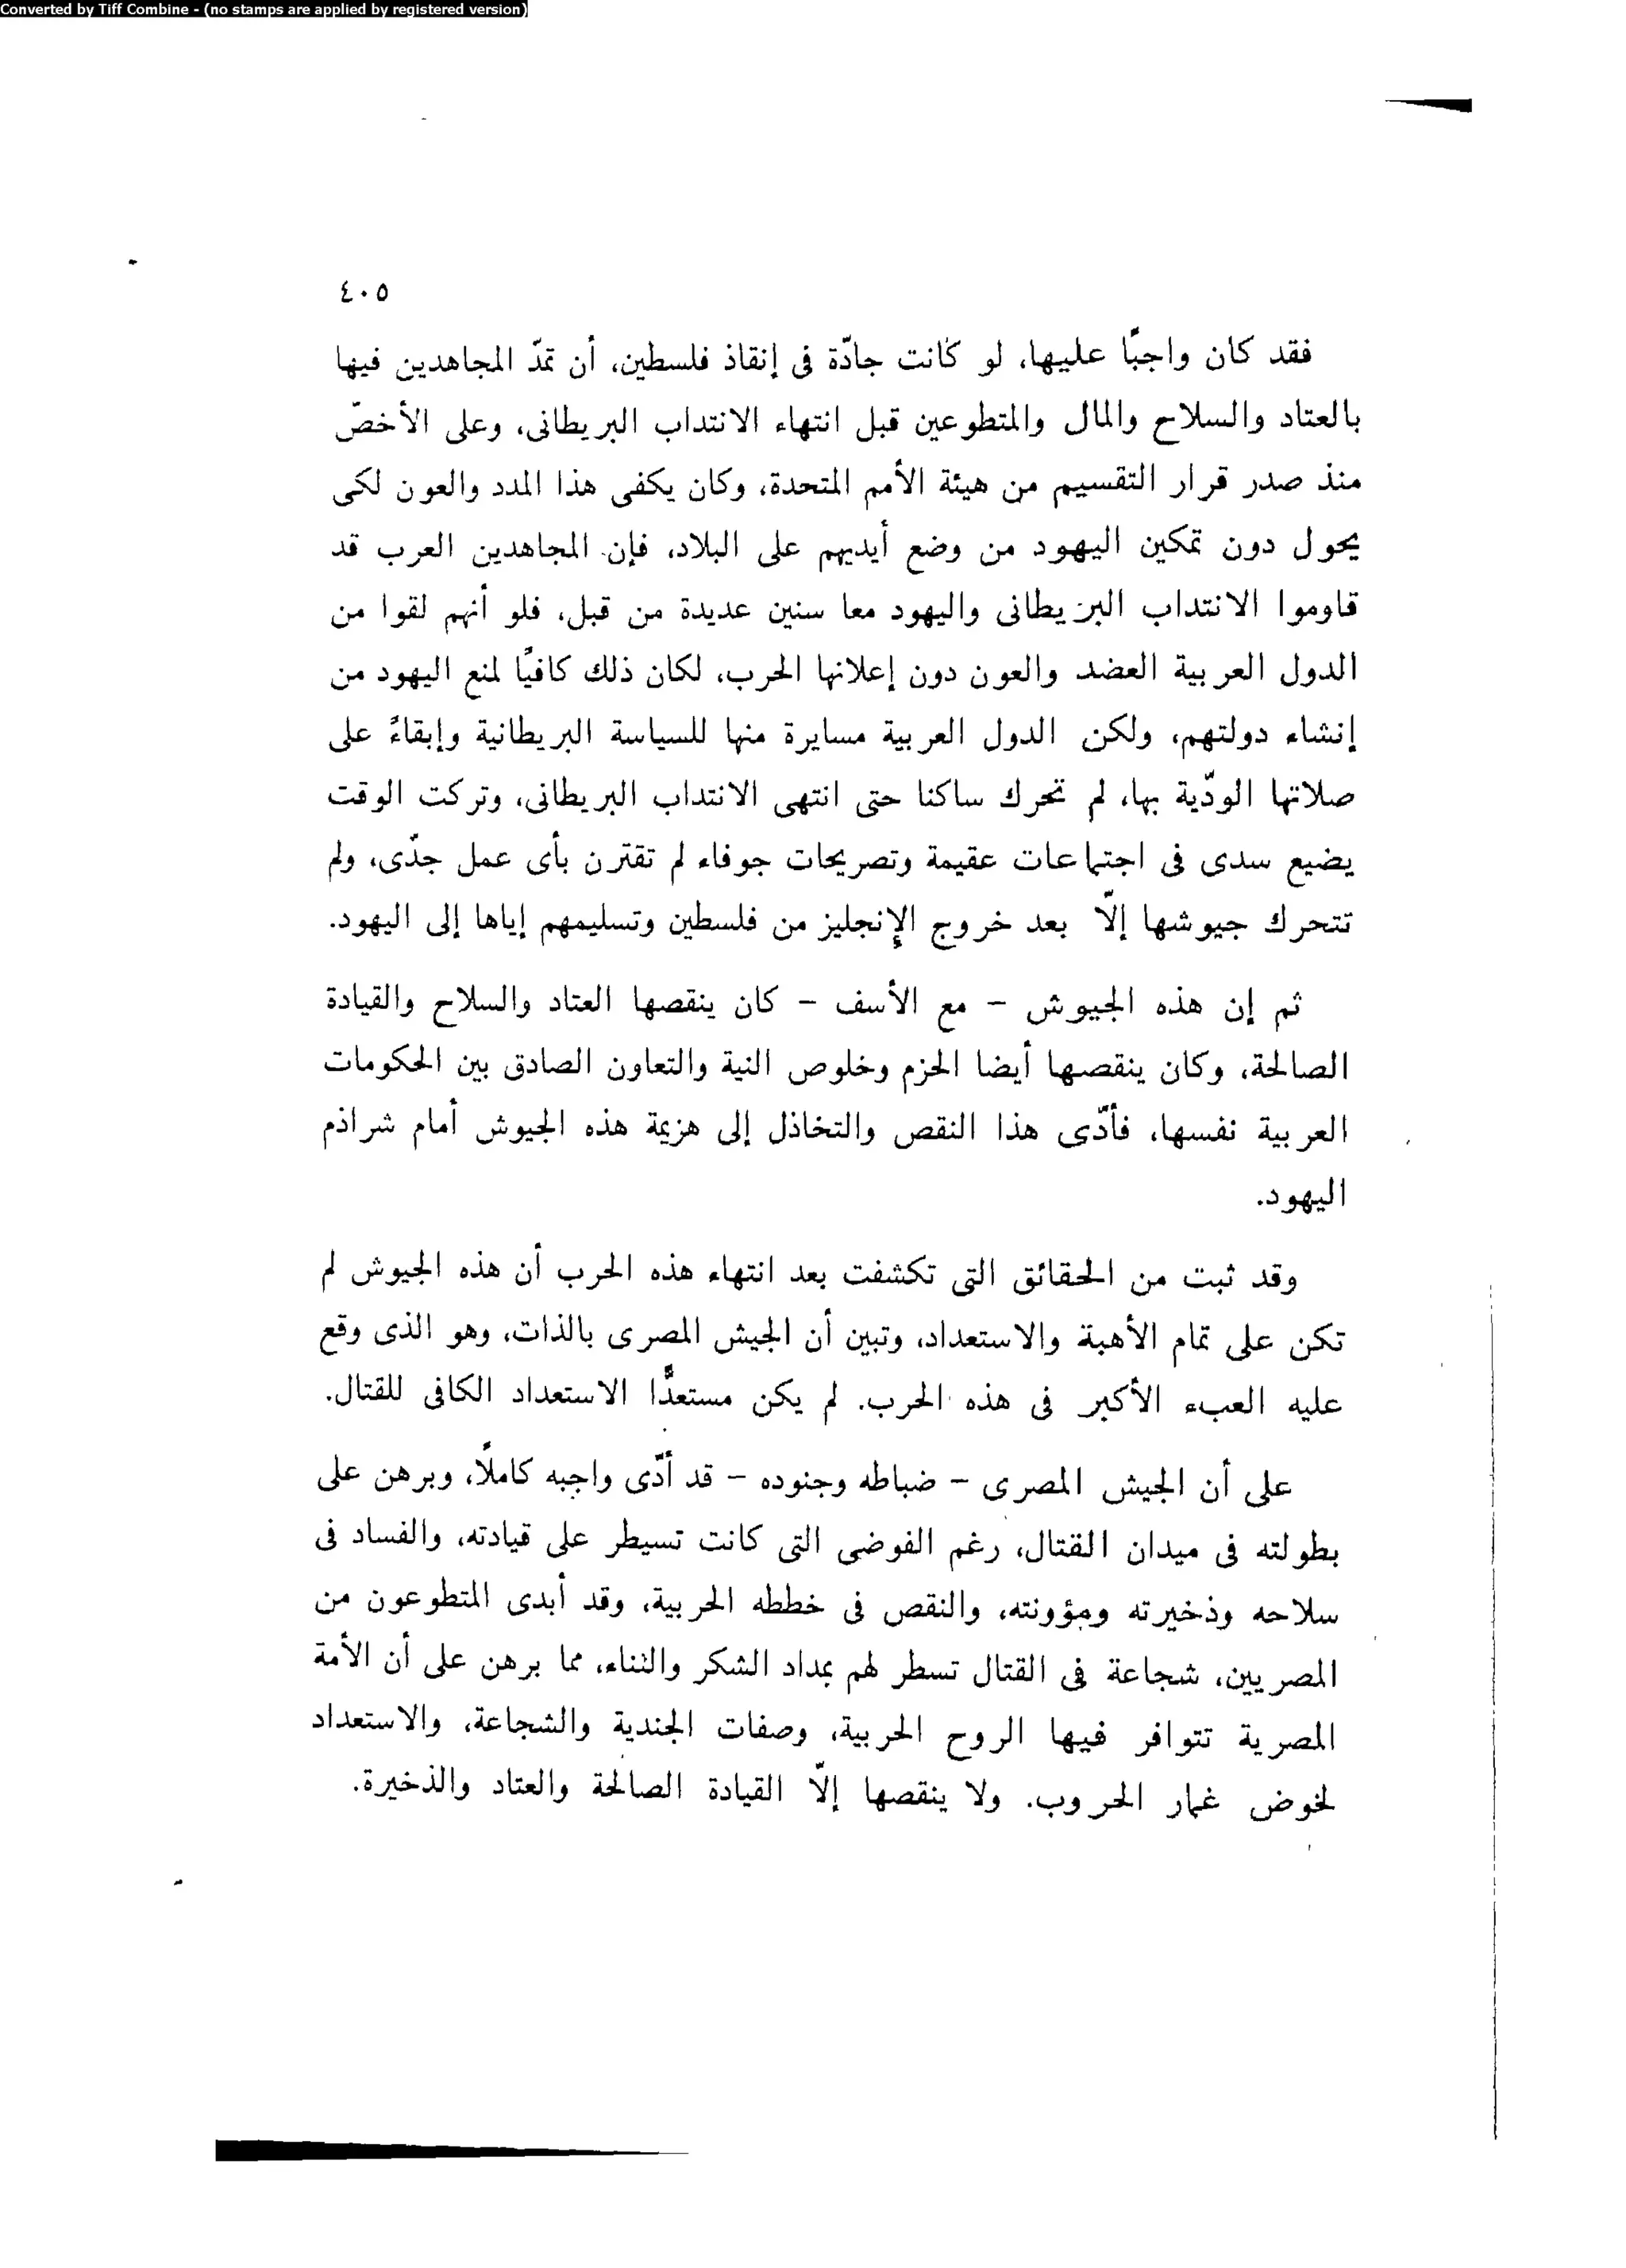 Converted by Tiff Combine - (no stamps are applied by registered version)
٤٠٥
فقد كان واجبًا عليها، لو كانت جادّة فى إنقاذ فلسطين، أن تمدّ المجاهدين فيها
بالعتاد والسلاح والمال والمتطوعين قبل انتهاء الانتداب البريطانى، وعلى الأخصّ
منذ صدر قرار التقسيم من هيئة الأمم المتحدة، وكان يكفى هذا المدد والعون لكى
يحول دون تمكين اليهود من وضع أيديهم على البلاد، فإن المجاهدين العرب قد
قاوموا الانتداب البريطانى واليهود معا سنين عديدة من قبل، فلو أنهم لقوا من
الدول العربية العضد والعون دون إعلانها الحرب، لكان ذلك كافيًا لمنع اليهود من
إنشاء دولتهم، ولكن الدول العربية مسايرة منها للسياسة البريطانية وإبقاءً على
صلاتها الودّية بها، لم تحرك ساكنا حتى انتهى الانتداب البريطانى، وتركت الوقت
يضيع سدى فى اجتماعات عقيمة وتصريحات جوفاء لم تقترن بأى عمل جدّى، ولم
تتحرك جيوشها إلّا بعد خروج الإنجليز من فلسطين وتسليمهم إياها إلى اليهود.
ثم إن هذه الجيوش - مع الأسف - كان ينقصها العتاد والسلاح والقيادة
الصالحة، وكان ينقصها أيضا الحزم وخلوص النية والتعاون الصادق بين الحكومات
العربية نفسها، فأدّى هذا النقص والتخاذل إلى هزيمة هذه الجيوش أمام شراذم
اليهود.
وقد ثبت من الحقائق التى تكشفت بعد انتهاء هذه الحرب أن هذه الجيوش لم
تكن على تمام الأهبة والاستعداد، وتبين أن الجيش المصرى بالذات، وهو الذى وقع
عليه العبء الأكبر فى هذه الحرب. لم يكن مستعدًّا الاستعداد الكافى للقتال.
على أن الجيش المصرى - ضباطه وجنوده - قد أدّى واجبه كاملًا، وبرهن على
بطولته فى ميدان القتال، رغم الفوضى التى كانت تسيطر على قيادته، والفساد فى
سلاحه وذخيرته ومؤونته، والنقص فى خططه الحربية، وقد أبدى المتطوعون من
المصريين، شجاعة فى القتال تسطر لهم بمداد الشكر والثناء، مما برهن على أن الأمة
المصرية تتوافر فيها الروح الحربية، وصفات الجندية والشجاعة، والاستعداد
لخوض غمار الحروب. ولا ينقصها إلّا القيادة الصالحة والعتاد والذخيرة.